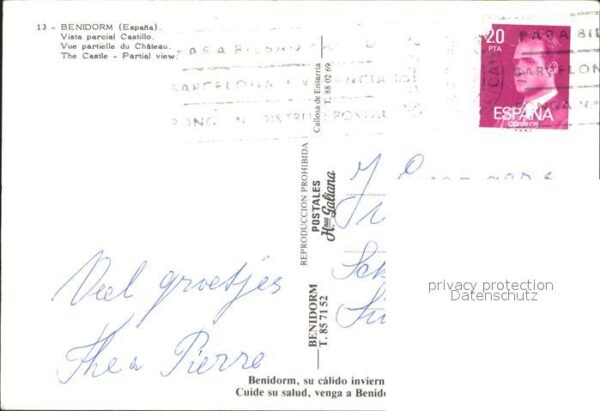 13 - BENIDORM (España).
Vista parcial Castillo.
Vue partielle du Château.
The Castle - Partial view.
PARA BILBAO
BARCELONA
PONGA N. DISTRITO POSTAL
20
PTA
ESPAÑA
CORREOS
PARA BIL
BARCELON
ONGA N.
Callosa de Ensarria
T. 88 02 69
REPRODUCCION PROHIBIDA
POSTALES
Hnos Galiana
BENIDORM
T. 85 71 52
privacy protection
Datenschutz
Veel groetjes
Thea Pierre
Benidorm, su cálido inviern
Cuide su salud, venga a Benido